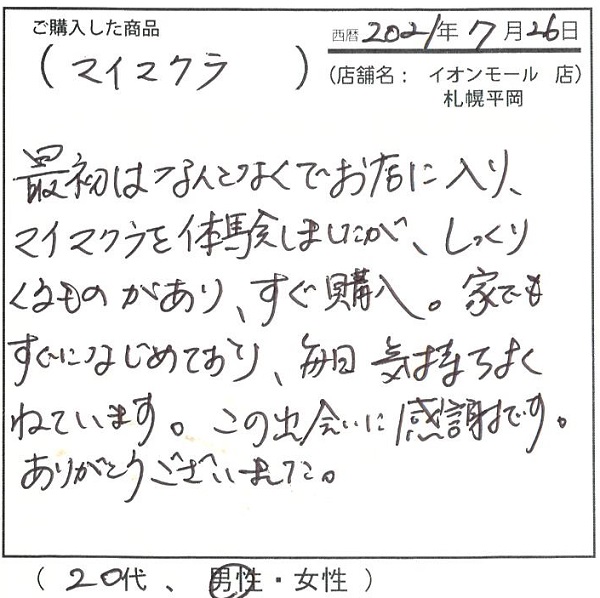 ご購入した商品
西暦 2021年 7月26日
(マイマクラ)
(店舗名: イオンモール 店)
札幌平岡
最初はなんとなくでお店に入り、
マイマクラを体験しましたが、しっくり
くるものがあり、すぐ購入。家でも
すぐになじめており、毎日気持ちよく
ねています。この出会いに感謝です。
ありがとうございました。
(20代、男性・女性)